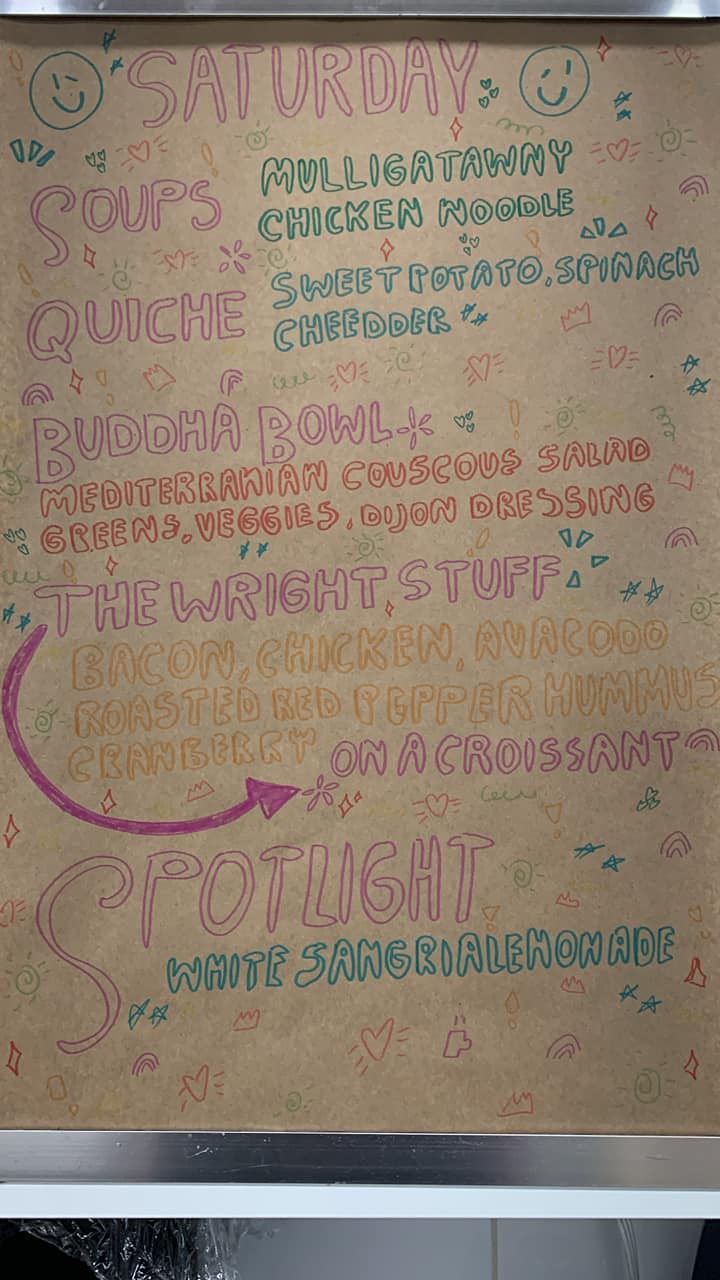 SATURDAY
SOUPS
MULLIGATAWNY
CHICKEN NOODLE
QUICHE
SWEET POTATO, SPINACH
CHEEDDER
BUDDHA BOWL
MEDITERRANIAN COUSCOUS SALAD
GREENS, VEGGIES, DIJON DRESSING
THE WRIGHT STUFF
BACON, CHICKEN, AVACODO
ROASTED RED PEPPER HUMMUS
CRANBERRY ON A CROISSANT
SPOTLIGHT
WHITE SANGRIA LEMONADE